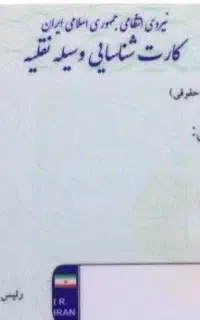 نیروی انتظامی جمهوری اسلامی ایران
کارت شناسایی وسیله نقلیه
حقوقی)
:
I.R.
IRAN
رئیس